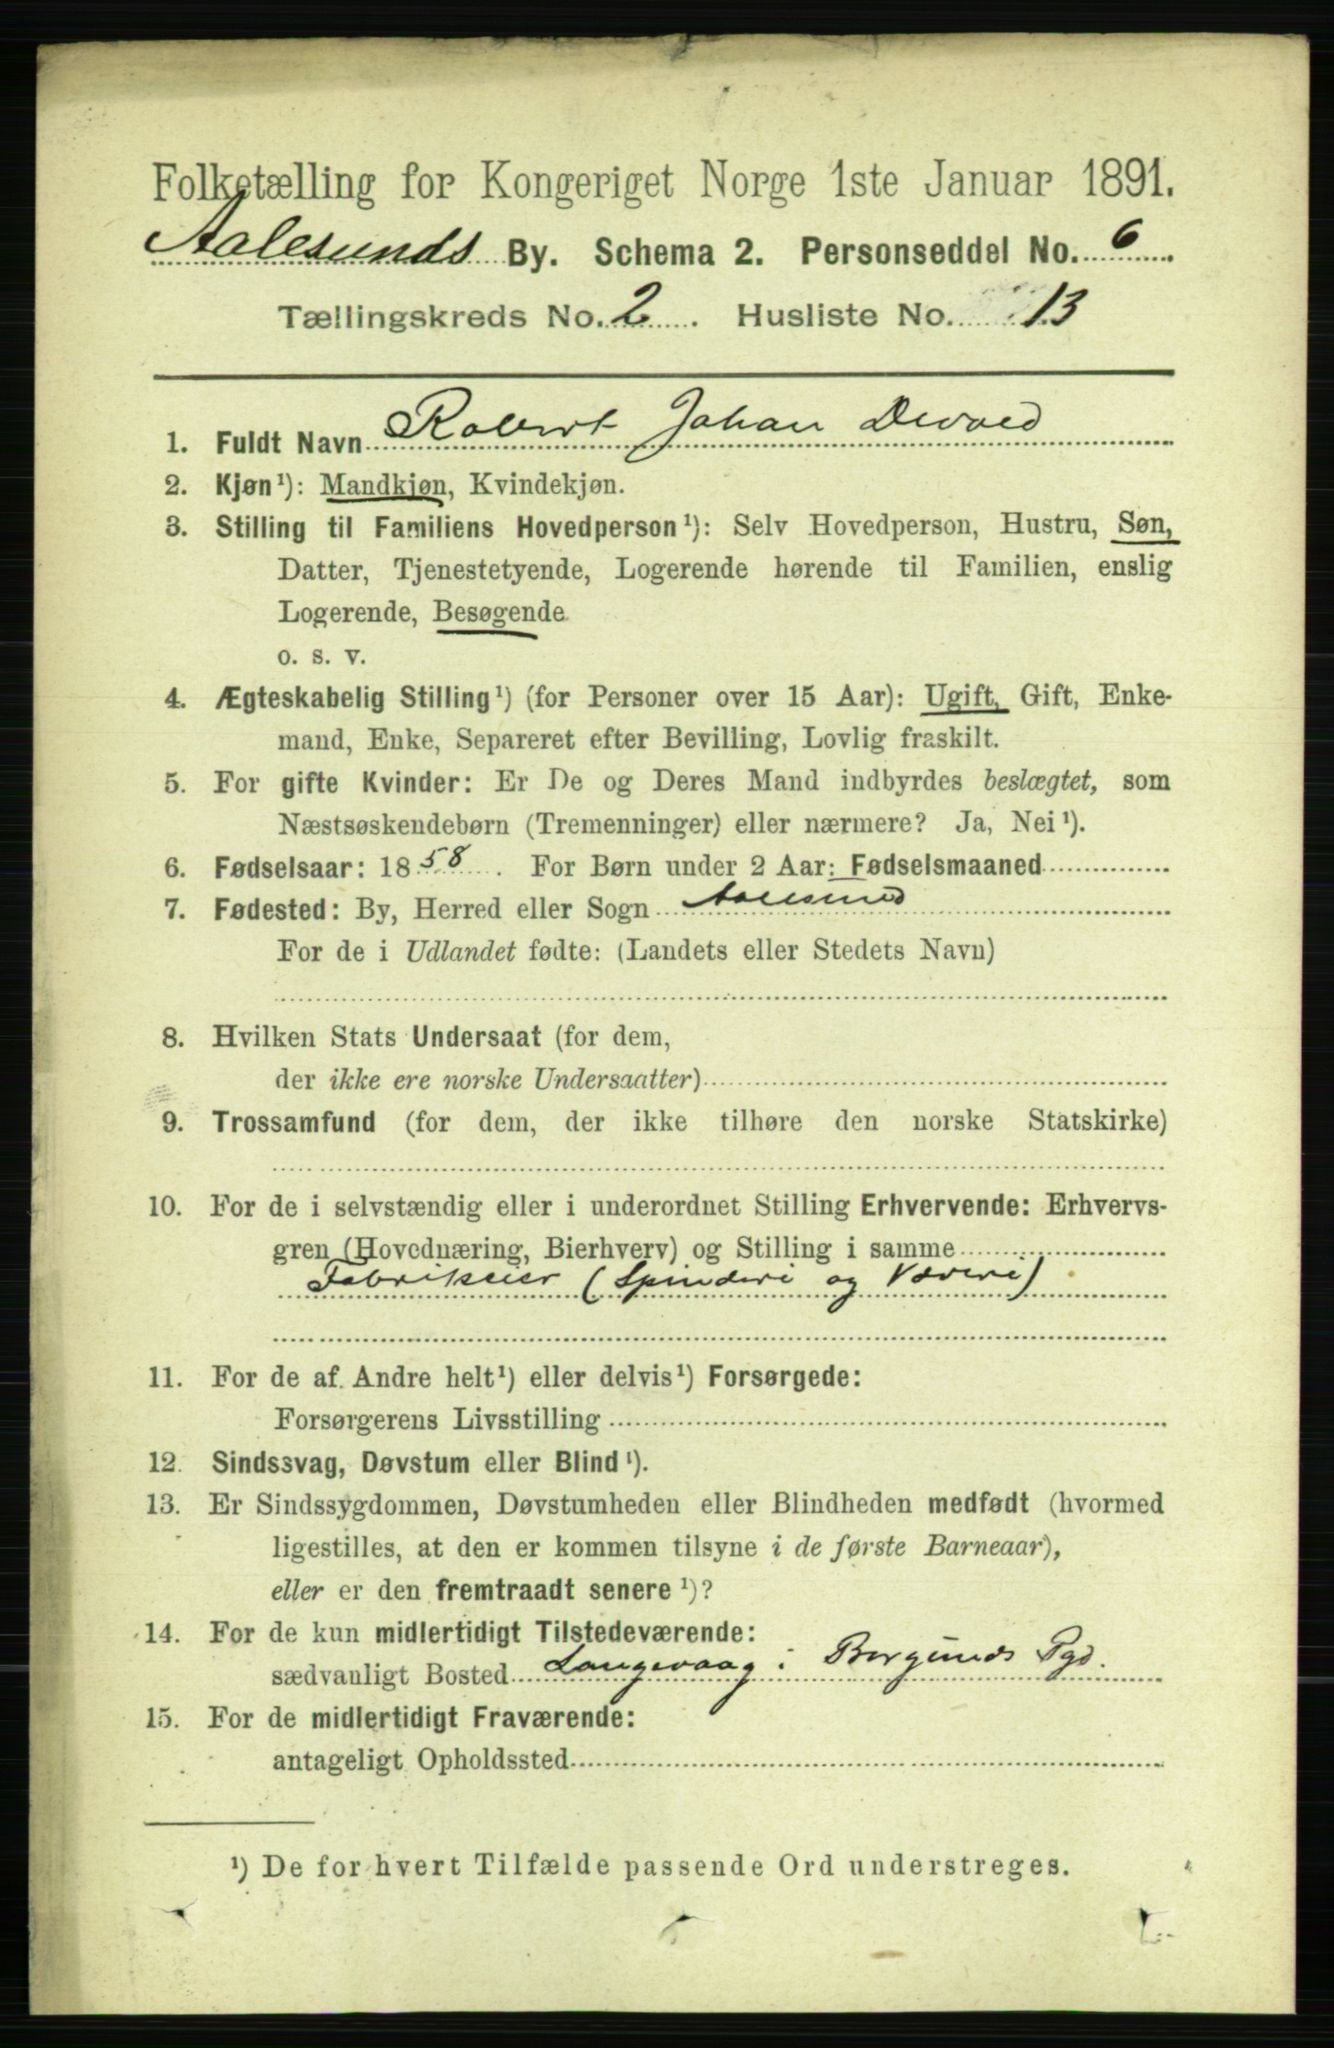 Folketælling for Kongeriget Norge 1ste Januar 1891.
Aalesunds By. Schema 2. Personseddel No. 6
Tællingskreds No. 2. Husliste No. 13
1. Fuldt Navn Robert Johan Devold
2. Kjøn¹): Mandkjøn, Kvindekjøn.
3. Stilling til Familiens Hovedperson¹): Selv Hovedperson, Hustru, Søn,
Datter, Tjenestetyende, Logerende hørende til Familien, enslig
Logerende, Besøgende
o. s. v.
4. Ægteskabelig Stilling¹) (for Personer over 15 Aar): Ugift, Gift, Enke-
mand, Enke, Separeret efter Bevilling, Lovlig fraskilt.
5. For gifte Kvinder: Er De og Deres Mand indbyrdes beslægtet, som
Næstsøskendebørn (Tremenninger) eller nærmere? Ja, Nei¹).
6. Fødselsaar: 1858. For Børn under 2 Aar: Fødselsmaaned
7. Fødested: By, Herred eller Sogn Aalesund
For de i Udlandet fødte: (Landets eller Stedets Navn)
8. Hvilken Stats Undersaat (for dem,
der ikke ere norske Undersaatter)
9. Trossamfund (for dem, der ikke tilhøre den norske Statskirke)
10. For de i selvstændig eller i underordnet Stilling Erhvervende: Erhvervs-
gren (Hovednæring, Bierhverv) og Stilling i samme
Fabrikeier (Spinderi og Væveri)
11. For de af Andre helt¹) eller delvis¹) Forsørgede:
Forsørgerens Livsstilling
12. Sindssvag, Døvstum eller Blind¹).
13. Er Sindssygdommen, Døvstumheden eller Blindheden medfødt (hvormed
ligestilles, at den er kommen tilsyne i de første Barneaar),
eller er den fremtraadt senere¹)?
14. For de kun midlertidigt Tilstedeværende:
sædvanligt Bosted Langevaag i Borgunds Pgd.
15. For de midlertidigt Fraværende:
antageligt Opholdssted
¹) De for hvert Tilfælde passende Ord understreges.